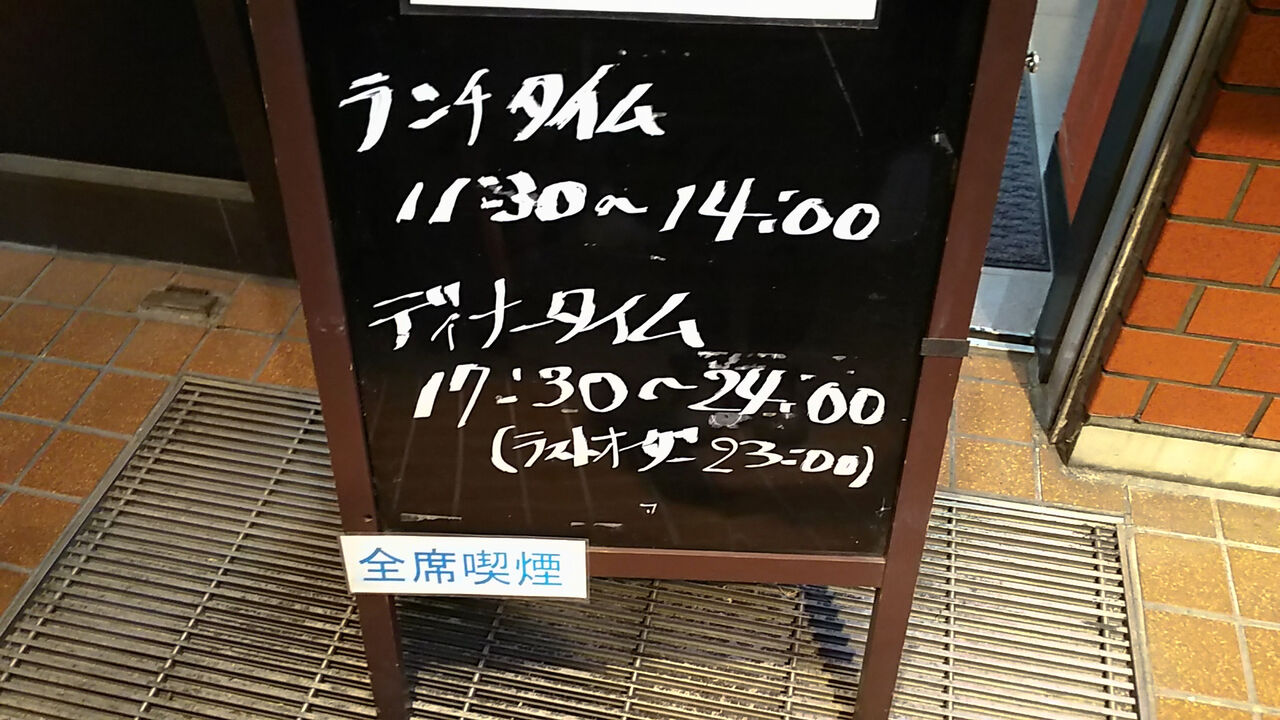 ランチタイム
11:30～14:00
ディナータイム
17:30～24:00
(ラストオーダー23:00)
全席喫煙